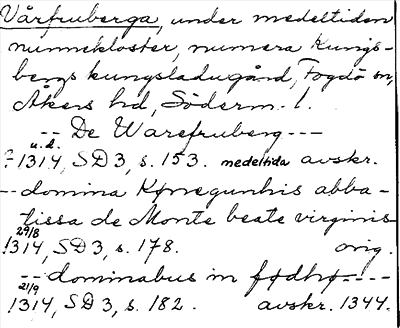 Vårfruberga, under medeltiden
nunnekloster, numera Kungs-
bergs kungsladugård, Fogdö sn,
Åkers hd, Söderm. l.
-- De Warefruberg ---
u.d.
?1314, SD 3, s. 153. medeltida avskr.
-- domina Kønegunhis abba-
tissa de Monte beate virginis
29/8
1314, SD 3, s. 178. orig.
-- dominabus in fødhø----
21/9
1314, SD 3, s. 182. avskr. 1344.